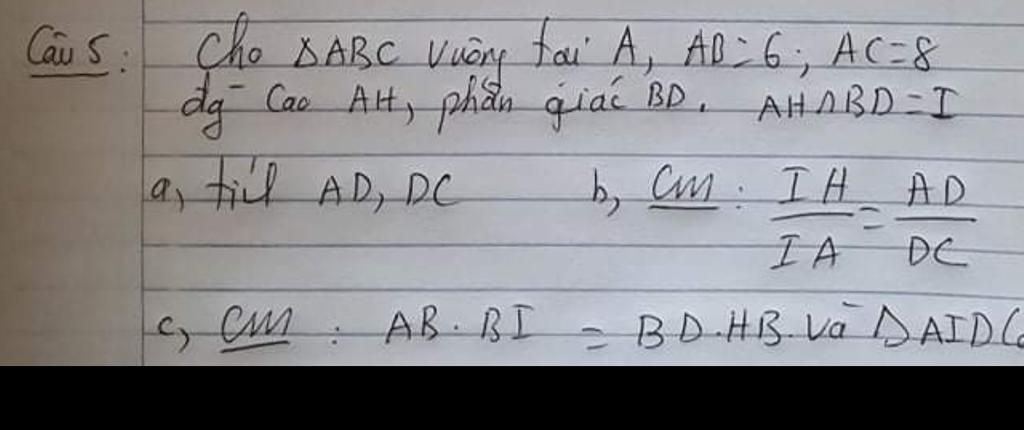 Câu 5: Cho ΔABC vuông tại A, AB=6; AC=8
đg cao AH, phân giác BD. AH∩BD=I
a, tính AD, DC b, Cm: IH/IA = AD/DC
c, Cm: AB.BI = BD.HB. Và ΔAID